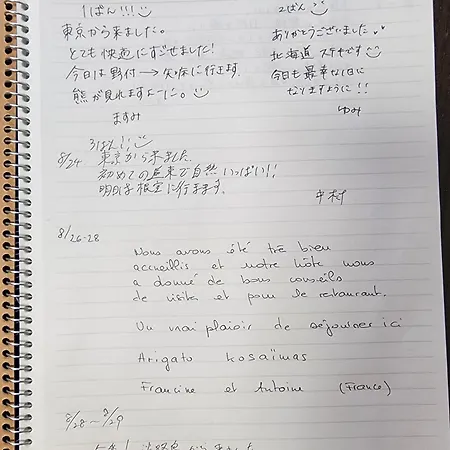 1ばん!!!
東京から来ました。
とても快適にすごせました!
今日は野付→知床に行きます。
熊が見れますよーに。
ますみ
2ばん
ありがとうございました
北海道ステキです
今日も最幸な1日に
なりますように!!
ゆみ
3ばん!!
8/24 東京から来ました。
初めての道東で自然いっぱい!!
明日は根室に行きます。
中村
8/26-28
Nous avons été très bien
accueillis et notre hôte nous
a donné de bons conseils
de visites et pour le restaurant.
Un vrai plaisir de séjourner ici
Arigato kosaïmas
Francine et Antoine (France)
8/28~8/29